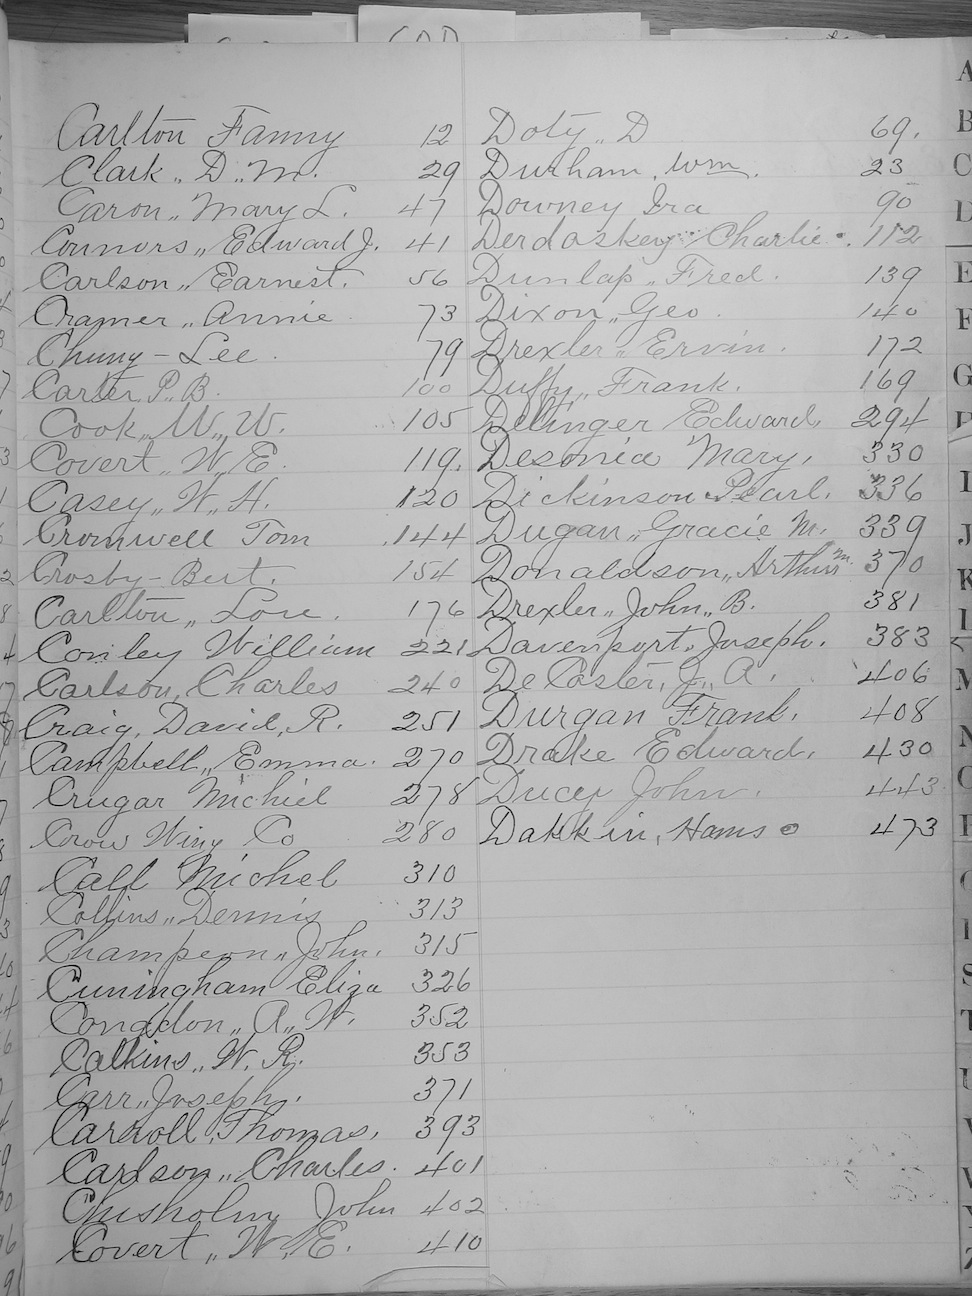 Carlton Fanny 12
Clark,, D,, M. 29
Caron,, Mary L. 47
Connors,, Edward J. 41
Carlson,, Earnest. 56
Cramer,, Annie 73
Chung-Lee. 79
Carter, P,, B. 100
Cook,, W,, W. 105
Covert,, W, E. 119.
Casey,, W. H. 120
Cromwell Tom 144
Crosby-Bert. 154
Carlton,, Lou. 176
Conley William 221
Carlson, Charles 240
Craig, David, R. 251
Campbell,, Emma. 270
Crugar Michiel 278
Crow Wing Co 280
Call Michel 310
Collins,, Dennis 313
Champeon,, John. 315
Cuningham Eliza 326
Congdon,, A,, W. 352
Calkins,, W. R. 353
Carr,, Joseph. 371
Carroll, Thomas. 393
Carlson,, Charles. 401
Chisholm John 402
Covert,, W, E. 410
Doty,, D 69.
Durham, Wm. 23
Downey Ira 90
Derdoskey Charlie. 112
Dunlap,, Fred. 139
Dixon,, Geo. 140
Drexler,, Ervin. 172
Duffy,, Frank. 169
Delinger Edward. 294
Desonia Mary. 330
Dickinson Pearl. 336
Dugan,, Gracie M. 339
Donaldson,, Arthur m. 370
Drexler,, John,, B. 381
Davenport, Joseph. 383
De Caster, J,, A. 406
Durgan Frank. 408
Drake Edward. 430
Ducey John. 443
Dakkin, Hans 473
A
B
C
D
E
F
G
I
J
K
L
M
N